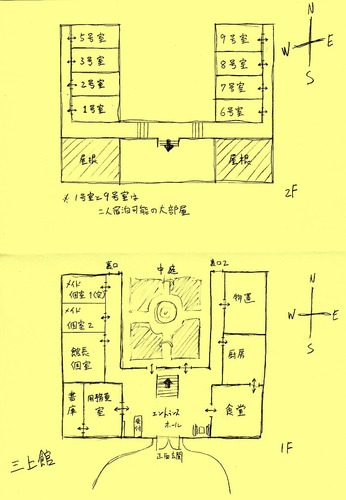 N
W E
S
5号室
3号室
2号室
1号室
9号室
8号室
7号室
6号室
屋根
屋根
※1号室と9号室は
二人宿泊可能の大部屋
2F
裏口
中庭
裏口2
メイド
個室1(空)
メイド
個室2
館長
個室
書庫
用務要室
物置
厨房
食堂
エントランス
ホール
受付
正面玄関
N
W E
S
1F
三上館